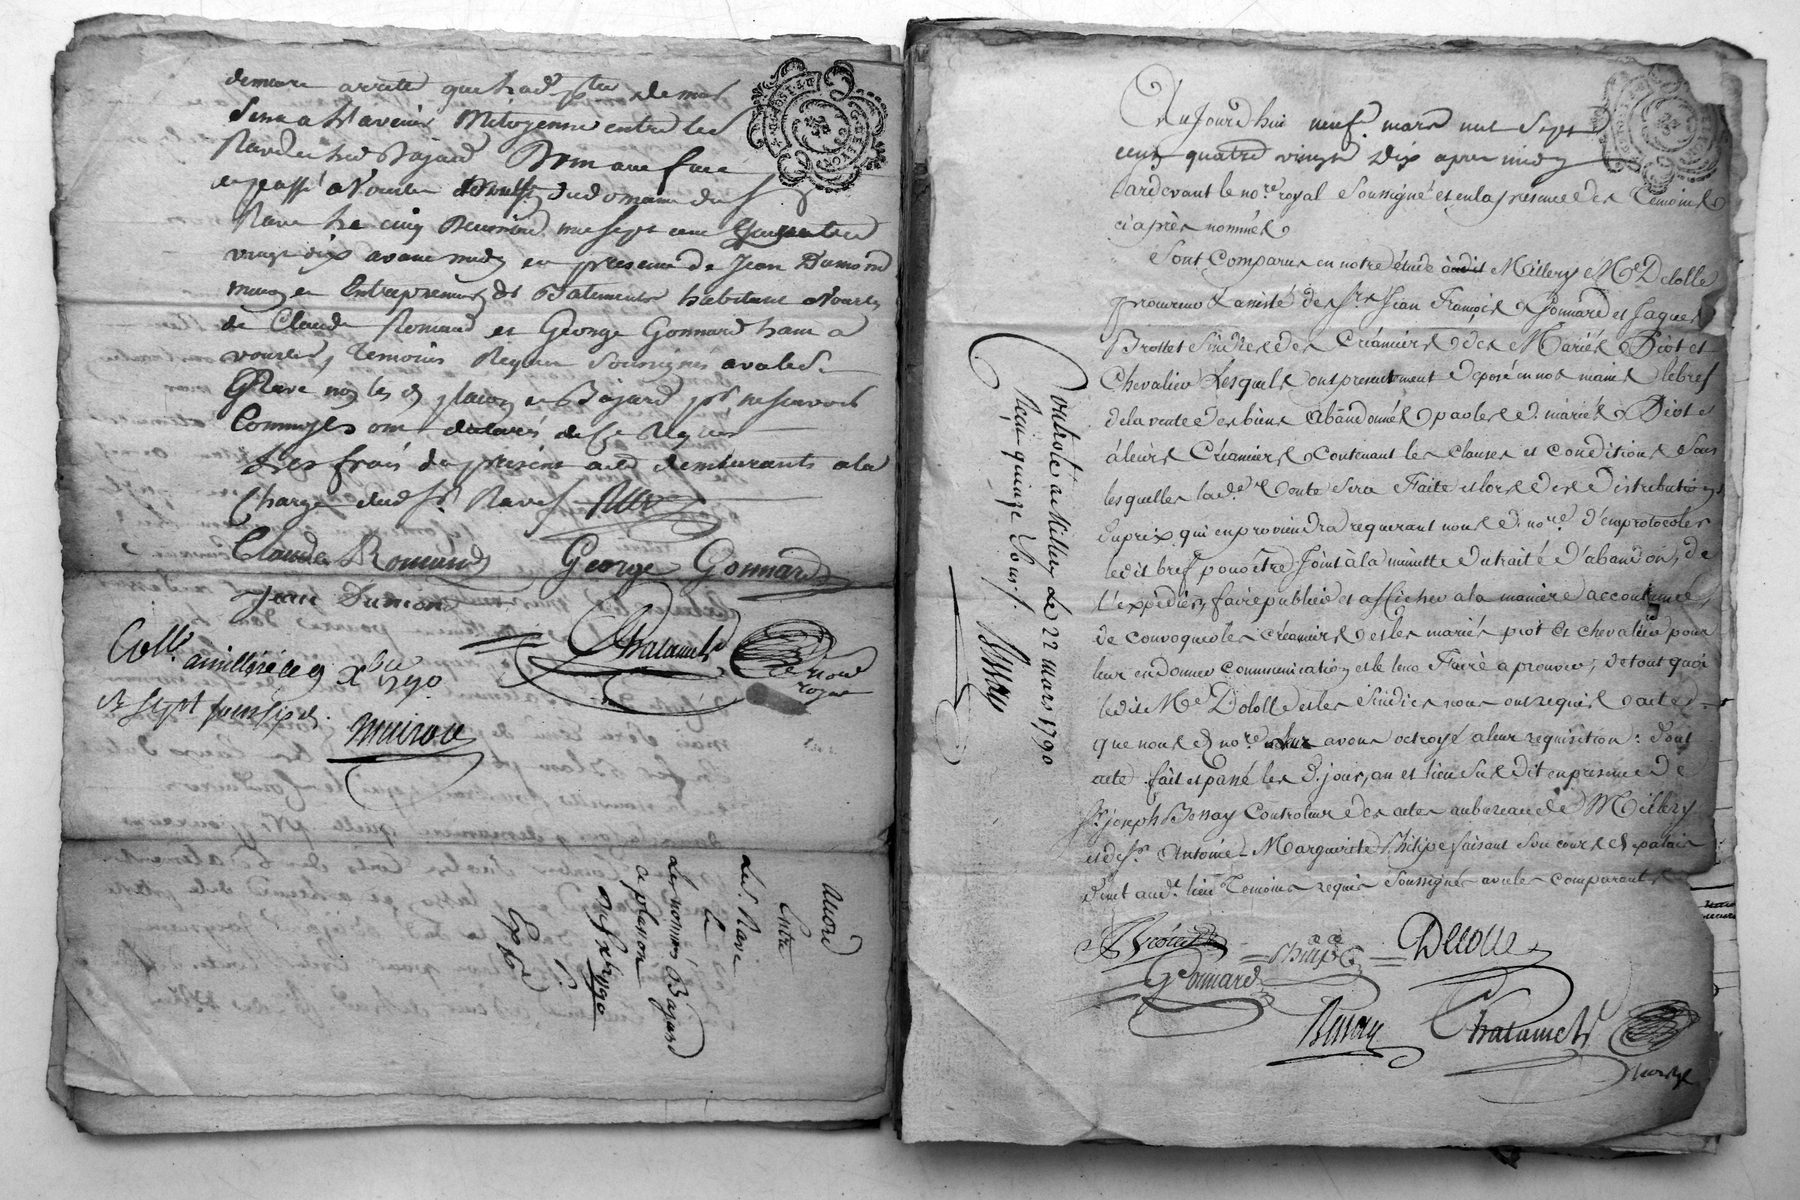 demeure arrêté que lad.
sera a l'avenir Mitoyenne entre les
Rave et led Bajard
et passé a Vourles du domaine du s.
Rave le cinq mil sept cent quatre
vingt dix avant midy en presence de Jean Dumond
entrepreneur de Batiments habitant a Vourles
de Claude Romand et George Gonnard hant a
vourles, temoins Requis soussignés avec led s.
Rave non les d. plancon et Bajard pr ne sçavoir
Comme ils ont déclarés de ce Requis
Les frais du present acte demeurants a la
Charge dud sr. Rave Rave
Claude Romand George Gonnard
Jean Dumond
Chalamel
notre
royal
Coll. a millery ce 9 Xbre 1790
R sept
accord
Entre
Led. Rave
&
Les nommés Bajard
et plancon
du 5 xbre 1790
Expé.
Controlé a Millery Le 22 mars 1790
Reçu quinze sous s. Bonay
Aujourdhui neuf mars mil sept
cent quatre vingt dix apres midy
Pardevant le nore. royal soussigné et en la presence des temoins
ci après nommés
Sont comparus en notre étude audit Millery Me Delolle
procureur & assisté des srs. Jean François Gonnard et Jaques
Brottet sindics des créanciers des Mariés Piot et
Chevalier Lesquels ont presentement déposé en nos mains le bref
de la vente des biens abandonnés par les d. mariés Piot et
à leurs créanciers contenant les clauses et conditions sous
lesquelles lad. vente sera faite et lors des distributions
du prix qui en proviendra requerant nous d. nore. d'en protocoler
ledit bref pour être joint à la minutte du traité d'abandon, de
l'expédier, faire publier et afficher a la maniere accoutumée,
de convoquer les créanciers et les mariés piot et chevalier pour
leur en donner communication et le leur faire approuver; de tout quoi
ledit Me Delolle et les sindics nous ont requis acte
que nous d. nore. avons octroyé a leur requisition: dont
acte fait et passé les d. jour, an et lieu susdit en presence de
sr. joseph Bonay controleur des actes au bureau de Millery
et de sr. Antoine Marguerite Philipe faisant son cours de palais
aud. lieu temoins requis soussignés avec les comparants
Brottet Philipe Delolle
Gonnard
Bonay Chalamel